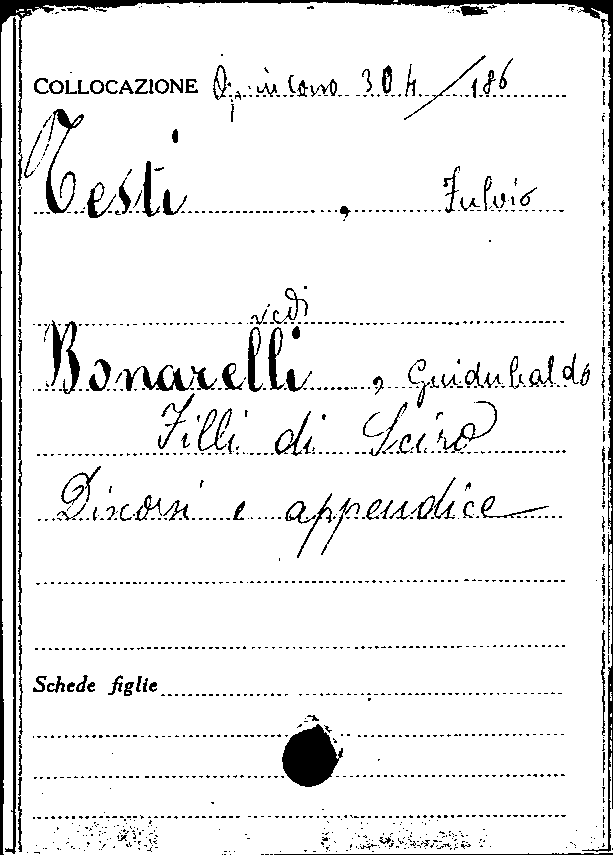 COLLOCAZIONE Op. in corso 304/186
Testi , Fulvio
vedi
Bonarelli , Guidubaldo
Filli di Sciro
Discorsi e appendice
Schede figlie